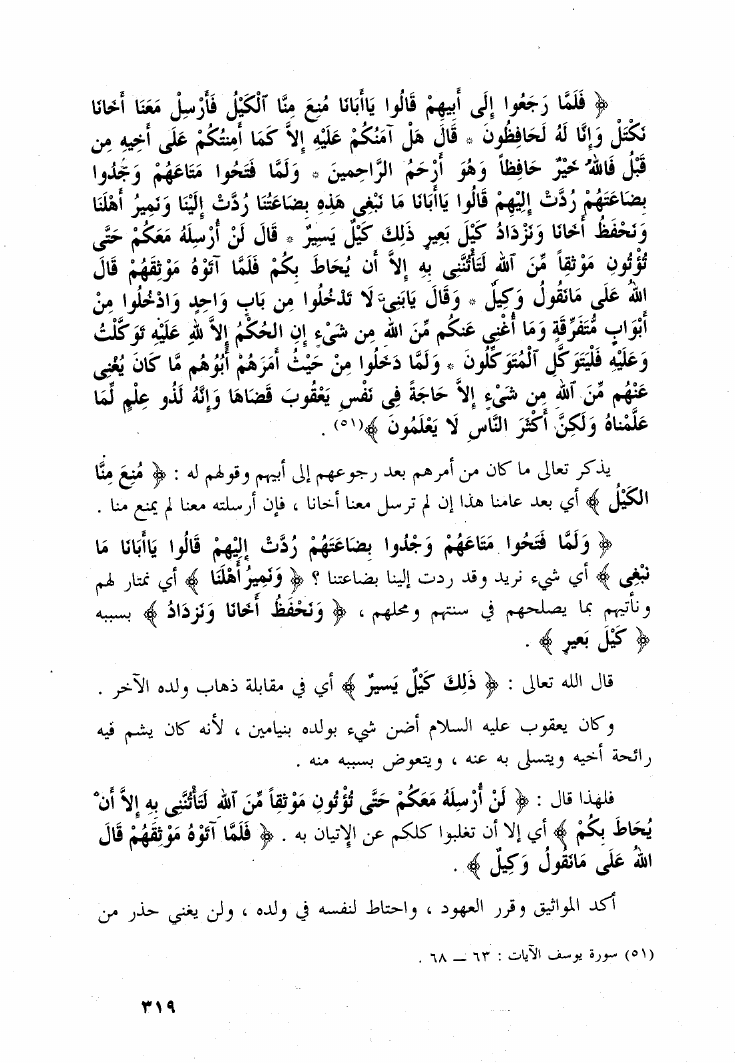 ﴿ فَلَمَّا رَجَعُوا إِلَى أَبِيهِمْ قَالُوا يَاأَبَانَا مُنِعَ مِنَّا ٱلْكَيْلُ فَأَرْسِلْ مَعَنَا أَخَانَا
نَكْتَلْ وَإِنَّا لَهُ لَحَافِظُونَ * قَالَ هَلْ آمَنُكُمْ عَلَيْهِ إِلاَّ كَمَا أَمِنتُكُمْ عَلَى أَخِيهِ مِن
قَبْلُ فَاللهُ خَيْرٌ حَافِظاً وَهُوَ أَرْحَمُ الرَّاحِمِينَ * وَلَمَّا فَتَحُوا مَتَاعَهُمْ وَجَدُوا
بِضَاعَتَهُمْ رُدَّتْ إِلَيْهِمْ قَالُوا يَاأَبَانَا مَا نَبْغِى هَذِهِ بِضَاعَتُنَا رُدَّتْ إِلَيْنَا وَنَمِيرُ أَهْلَنَا
وَنَحْفَظُ أَخَانَا وَنَزْدَادُ كَيْلَ بَعِيرٍ ذَلِكَ كَيْلٌ يَسِيرٌ * قَالَ لَنْ أُرْسِلَهُ مَعَكُمْ حَتَّى
تُؤْتُونِ مَوْثِقاً مِّنَ ٱللهِ لَتَأْتُنَّنِى بِهِ إِلاَّ أَن يُحَاطَ بِكُمْ فَلَمَّا آتَوْهُ مَوْثِقَهُمْ قَالَ
اللهُ عَلَى مَانَقُولُ وَكِيلٌ * وَقَالَ يَابَنِىَّ لَا تَدْخُلُوا مِن بَابٍ وَاحِدٍ وَادْخُلُوا مِنْ
أَبْوَابٍ مُّتَفَرِّقَةٍ وَمَا أُغْنِى عَنكُم مِّنَ اللهِ مِن شَىْءٍ إِنِ الحُكْمُ إِلاَّ للهِ عَلَيْهِ تَوَكَّلْتُ
وَعَلَيْهِ فَلْيَتَوَكَّلِ ٱلْمُتَوَكِّلُونَ * وَلَمَّا دَخَلُوا مِنْ حَيْثُ أَمَرَهُمْ أَبُوُهُم مَّا كَانَ يُغْنِى
عَنْهُم مِّنَ ٱللهِ مِن شَىْءٍ إِلاَّ حَاجَةً فِى نَفْسِ يَعْقُوبَ قَضَاهَا وَإِنَّهُ لَذُو عِلْمٍ لِّمَا
عَلَّمْنَاهُ وَلَكِنَّ أَكْثَرَ النَّاسِ لَا يَعْلَمُونَ ﴾(٥١) .
يذكر تعالى ما كان من أمرهم بعد رجوعهم إلى أبيهم وقولهم له : ﴿ مُنِعَ مِنَّا
الكَيْلُ ﴾ أي بعد عامنا هذا إن لم ترسل معنا أخانا ، فإن أرسلته معنا لم يمنع منا .
﴿ وَلَمَّا فَتَحُوا مَتَاعَهُمْ وَجَدُوا بِضَاعَتَهُمْ رُدَّتْ إِلَيْهِمْ قَالُوا يَاأَبَانَا مَا
نَبْغِى ﴾ أي شيء نريد وقد ردت إلينا بضاعتنا ؟ ﴿ وَنَمِيرُ أَهْلَنَا ﴾ أي نمتار لهم
ونأتيهم بما يصلحهم في سنتهم ومحلهم ، ﴿ وَنَحْفَظُ أَخَانَا وَنَزدَادُ ﴾ بسببه
﴿ كَيْلَ بَعيرٍ ﴾ .
قال الله تعالى : ﴿ ذَلِكَ كَيْلٌ يَسِيرٌ ﴾ أي في مقابلة ذهاب ولده الآخر .
وكان يعقوب عليه السلام أضن شيء بولده بنيامين ، لأنه كان يشم فيه
رائحة أخيه ويتسلى به عنه ، ويتعوض بسببه منه .
فلهذا قال : ﴿ لَنْ أُرْسِلَهُ مَعَكُمْ حَتَّى تُؤْتُونِ مَوْثِقاً مِّنَ ٱللهِ لَتَأْتُنَّنِى بِهِ إِلاَّ أَنْ
يُحَاطَ بِكُمْ ﴾ أي إلا أن تغلبوا كلكم عن الإتيان به . ﴿ فَلَمَّا آتَوْهُ مَوْثِقَهُمْ قَالَ
اللهُ عَلَى مَانَقُولُ وَكِيلٌ ﴾ .
أكد المواثيق وقرر العهود ، واحتاط لنفسه في ولده ، ولن يغني حذر من
(٥١) سورة يوسف الآيات : ٦٣ — ٦٨ .
٣١٩